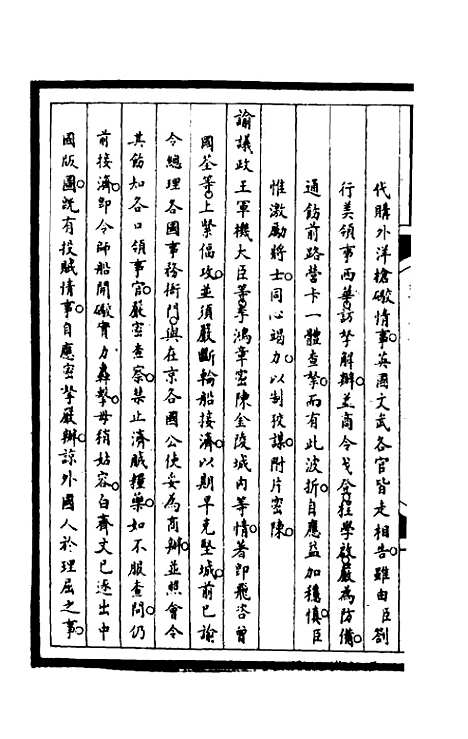 代購外洋槍礮情事英國文武各官皆走相告雖由臣劄
行美領事西華訪拏解辦並商令戈登程學啟嚴為防備
通飭前路營卡一體查拏而有此波折自應益加穩慎臣
惟激勵將士同心竭力以制狡謀附片密陳
諭議政王軍機大臣等李鴻章密陳金陵城內等情著即飛咨曾
國荃等上緊偪攻並須嚴斷輪船接濟以期早克堅城前已諭
令總理各國事務衙門與在京各國公使妥為商辦並照會令
其飭知各口領事官嚴密查察禁止濟賊糧藥如不服查問仍
前接濟即令師船開礮實力轟擊毋稍姑容白齊文已逐出中
國版圖既有投賊情事自應密拏嚴辦諒外國人於理屈之事